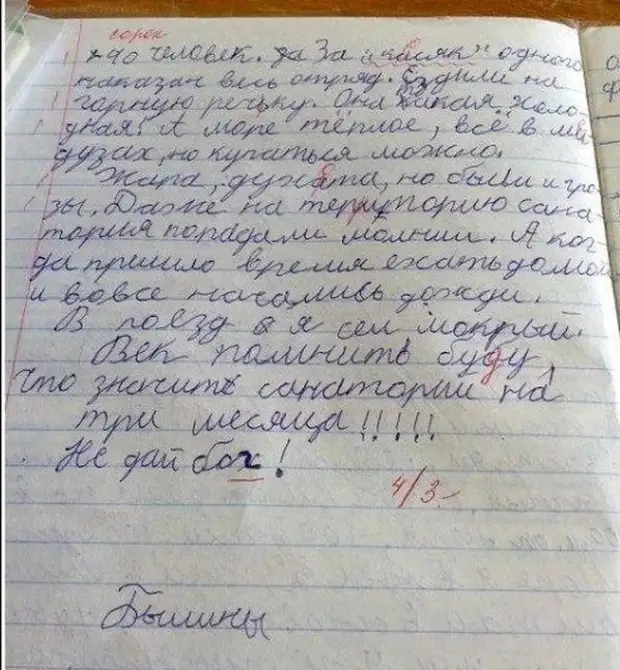 сорок
40 человек. За "косяк" одного
наказан весь отряд. Ездили на
горную речьку. Она такая холо
дная! А море тёплое, всё в ме
дузах, но купаться можно.
Жара, духата, но были и гро
зы. Даже на территорию сана
тория попадали молнии. А ког
да пришло время ехать домой
и вовсе начались дожди.
В поезд я сел мокрый.
Век помнить буду,
что значить санаторий на
три месяца!!!!!
Не дай бох!
4/3-
Былины